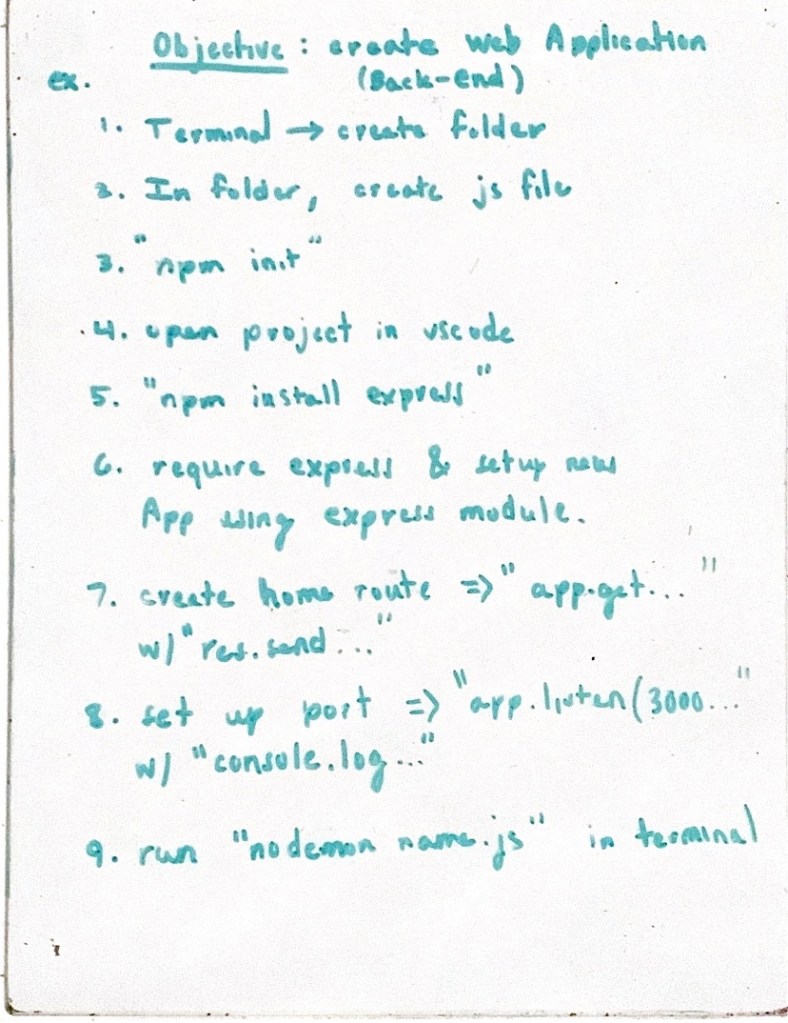 Objective : create web Application
ex. (Back-end)
1. Terminal → create folder
2. In folder, create js file
3. "npm init"
4. open project in vscode
5. "npm install express"
6. require express & setup new
App using express module.
7. create home route => "app.get... "
w/ "res.send ..."
8. set up port => "app.listen(3000..."
w/ "console.log..."
9. run "nodemon name.js" in terminal